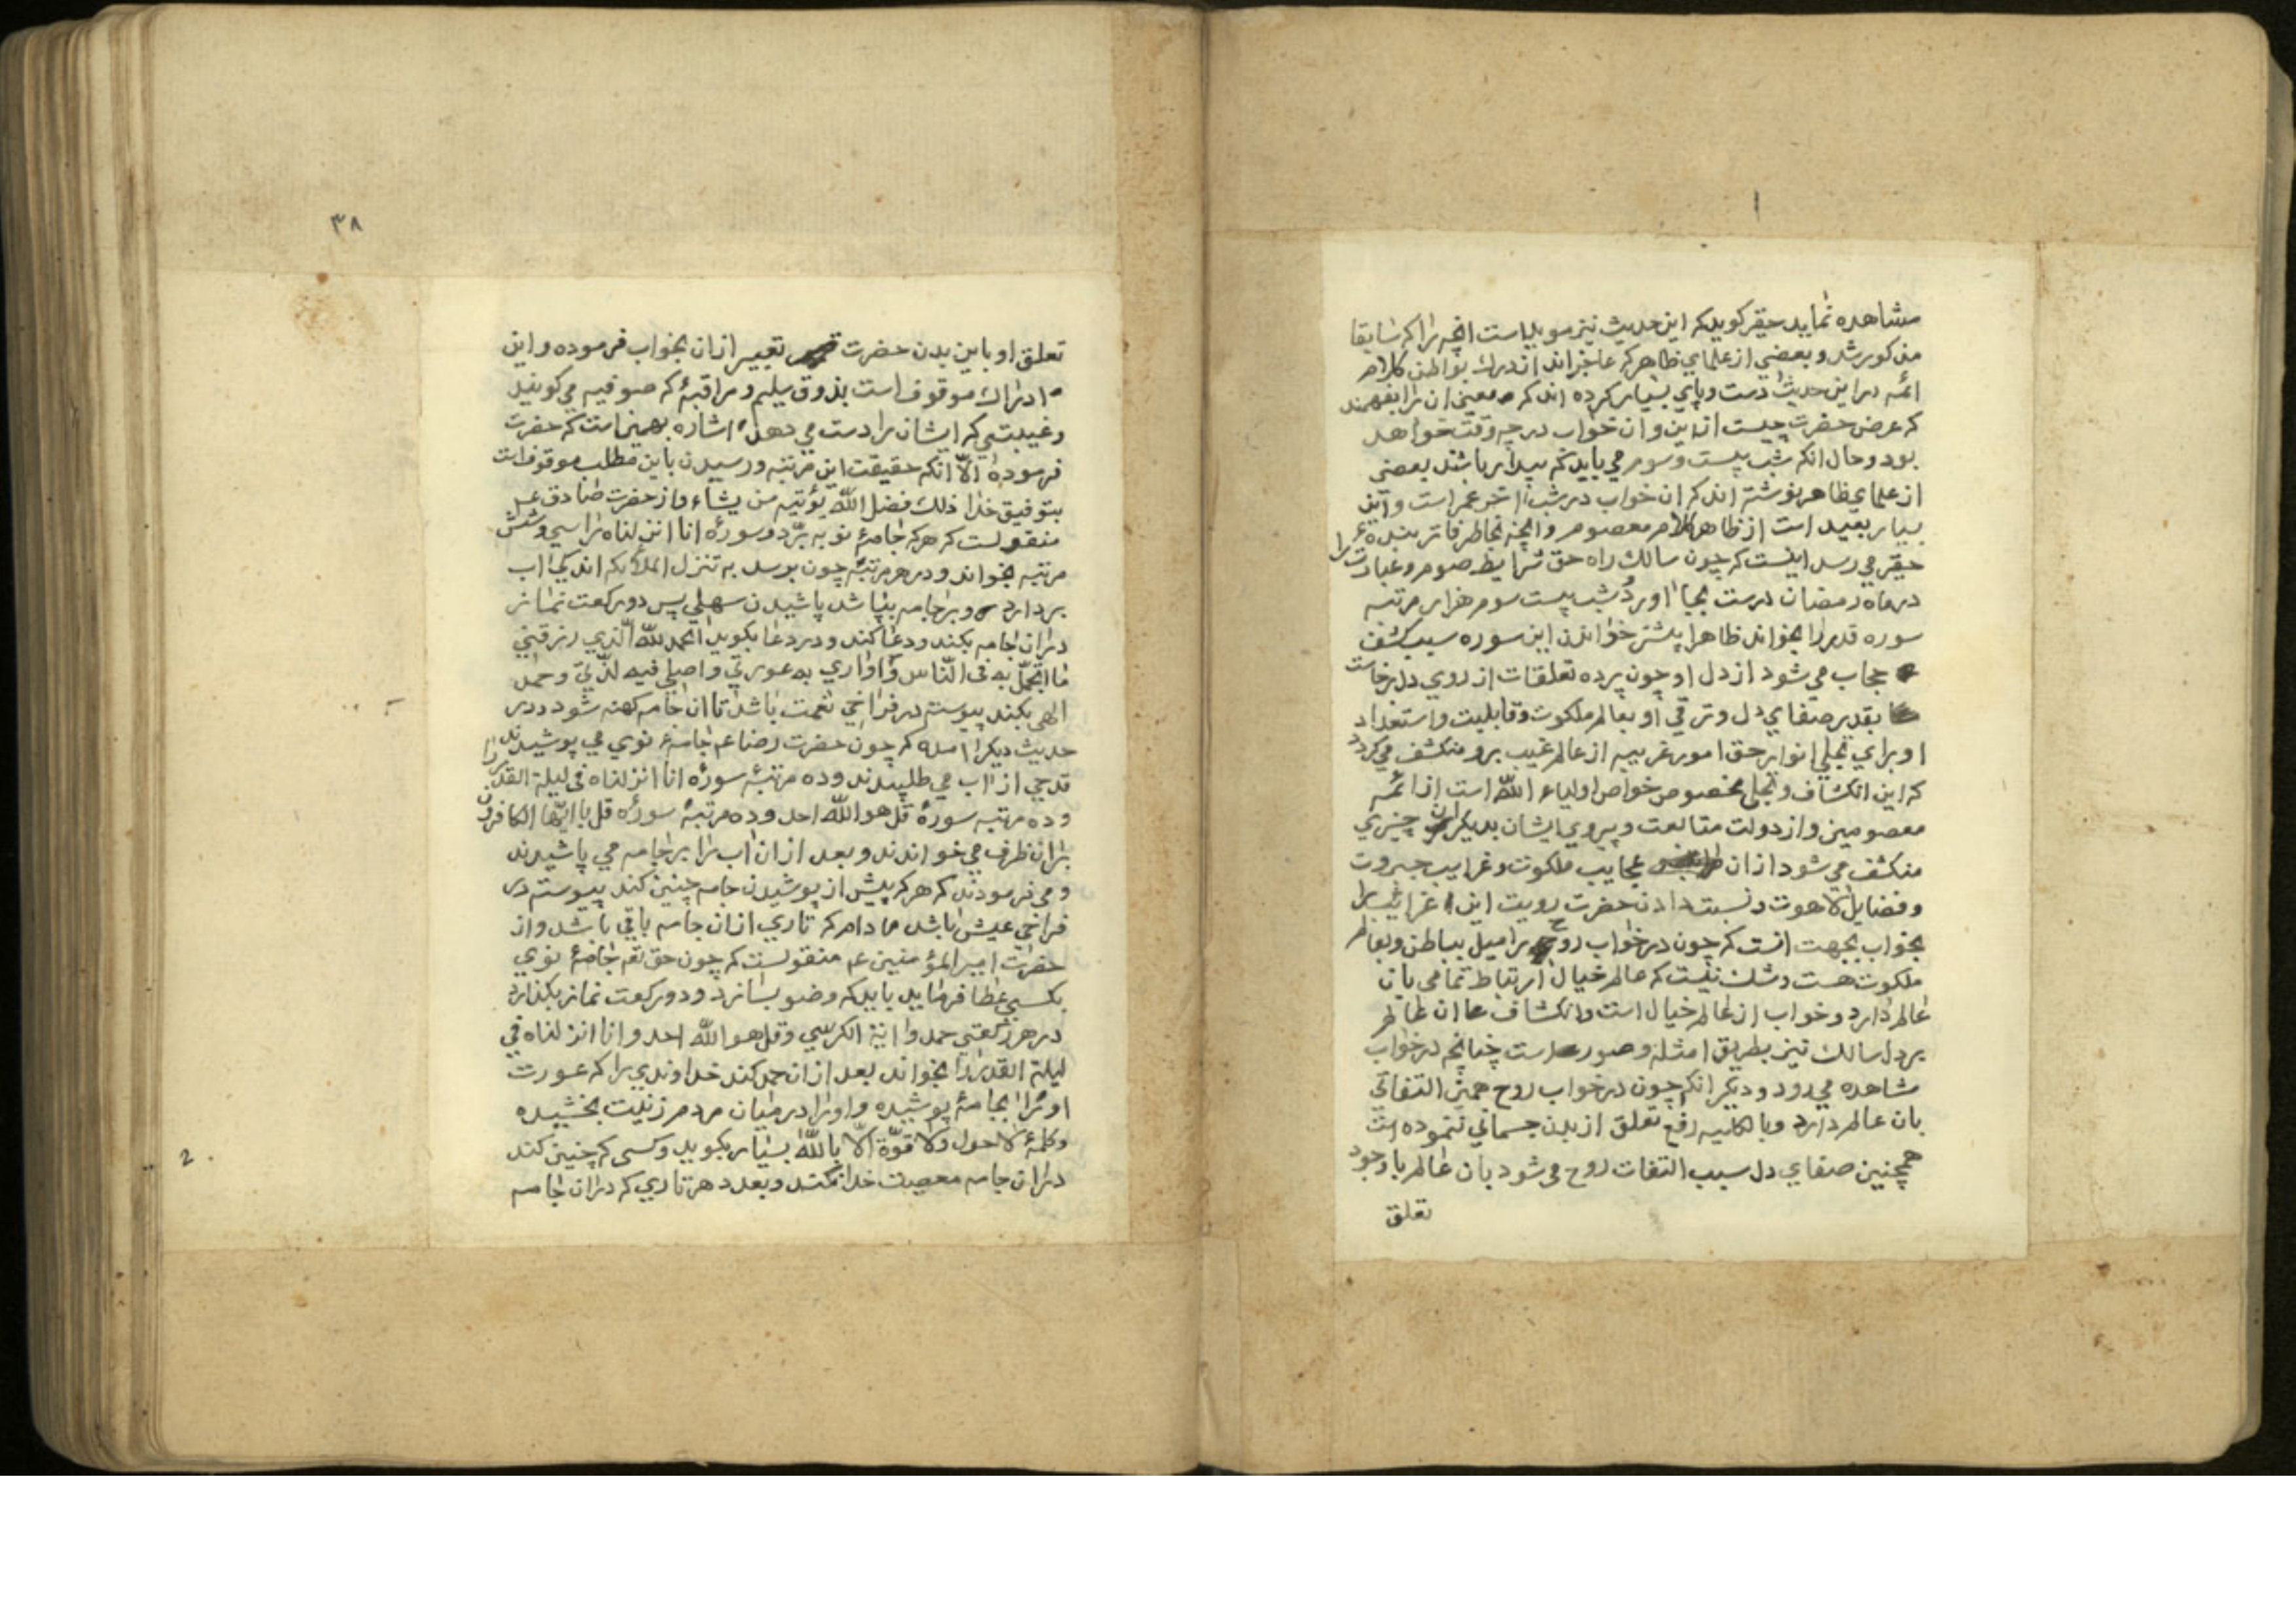 مشاهده نماید حقیر کوید که این حدیث نیز موید است انچه را که سابقا
مذکور شد و بعضي از علماي ظاهر که عاجزاند از درك بواطن کلام
ائمه در این حدیث دست و پاي بسیار کرده اند که معنی ان را بفهمند
که غرض حضرت چیست از این و ان خواب در چه وقت خواهد
بود و حال انکه شب بیست و سوم مي باید که بیدار باشند بعضی
از علماي ظاهر نوشته اند که ان خواب در شب اخر عمر است و این
بسیار بعید است از ظاهر کلام معصوم و انچه بخاطر فاتر بنده
حقیر مي رسد اینست که چون سالك راه حق شرایط صوم و عبادت را
در ماه رمضان درست بجا اورد و شب بیست سوم هزار مرتبه
سوره قدر را بخواند ظاهرا بیشتر خواندن این سوره سبب کشف
حجاب مي شود از دل او چون پرده تعلقات از روي دل برخاست
بقدر صفاي دل و ترقي او بعالم ملکوت و قابلیت و استعداد
او براي تجلي انوار حق امور غریبه از عالم غیب برو منکشف مي کردد
که این انکشاف و تجلی مخصوص خواص اولیاء اللّه است از ائمه
معصومین و از دولت متابعت و پیروي ایشان بدیکران چیزي
منکشف مي شود از ان عجایب ملکوت و غرایب جبروت
و فضایل لاهوت و نسبت دادن حضرت رویت این غرایب را
بخواب بجهت انست که چون در خواب روح را میل بباطن و بعالم
ملکوت هست و شك نیست که عالم خیال ارتباط تمامی بان
عالم دارد و خواب از عالم خیال است و انکشاف ان عالم
بر دل سالك نیز بطریق امثله و صور است چنانچه در خواب
مشاهده مي رود و دیکر انکه چون در خواب روح همین التفاتی
بان عالم دارد و بالکلیه رفع تعلق از بدن جسماني ننموده است
همچنین صفاي دل سبب التفات روح می شود بان عالم با وجود
تعلق
٣٨
تعلق او باین بدن حضرت تعبیر از ان بخواب فرموده و این
ادراك موقوف است بذوق سلیم و مراقبهٔ که صوفیه مي کویند
و غیبتي که ایشان را دست مي دهد اشاره بهمین است که حضرت
فرموده الّا انکه حقیقت این مرتبه و رسیدن باین مطلب موقوفست
بتوفیق خدا ذلك فضل اللّه یؤتیه من یشاء و از حضرت صادق ع
منقولست که هرکه جامهٔ نو ببرّد و سورهٔ انا انزلناه را سي و شش
مرتبه بخواند و در هر مرتبه چون برسد به تنزل الملائکه اندکی اب
بردارد و بر جامه بپاشد پاشیدن سهلي پس دو رکعت نماز
در ان جامه بکند و دعا کند و در دعا بکوید الحمد للّه الّذي رزقني
ما اتجمّل به فی النّاس و اواري به عورتي و اصلي فیه لربّي و حمد
الهی بکند پیوسته در فراخي نعمت باشد تا ان جامه کهنه شود و در
حدیث دیکر امده که چون حضرت رضا ع م جامهٔ نوي مي پوشیدند
قدحي از اب مي طلبیدند و ده مرتبهٔ سورهٔ انا انزلناه في لیلة القدر را
و ده مرتبه سورهٔ قل هو اللّه احد و ده مرتبهٔ سورهٔ قل یا ایّها الکافرون
بر ان ظرف مي خواندند و بعد از ان اب را بر جامه مي پاشیدند
و مي فرمودند که هر که پیش از پوشیدن جامه چنین کند پیوسته در
فراخي عیش باشد مادام که تاري از ان جامه باقي باشد و از
حضرات امیر المؤمنین ع م منقولست که چون حق تعم جامهٔ نوي
بکسي عطا فرماید باید که وضو بسازد و دو رکعت نماز بکذارد
در هر رکعتي حمد و ایة الکرسي و قل هو اللّه احد و انا انزلناه في
لیلة القدر را بخواند بعد از ان حمد کند خداوندي را که عورت
او را بجامهٔ پوشیده و او را در میان مردم زینت بخشیده
و کلمهٔ لا حول و لا قوّة الّا باللّه بسیار بکوید و کسی که چنین کند
در ان جامه معصیت خدا نکند و بعدد هر تاري که در ان جامه